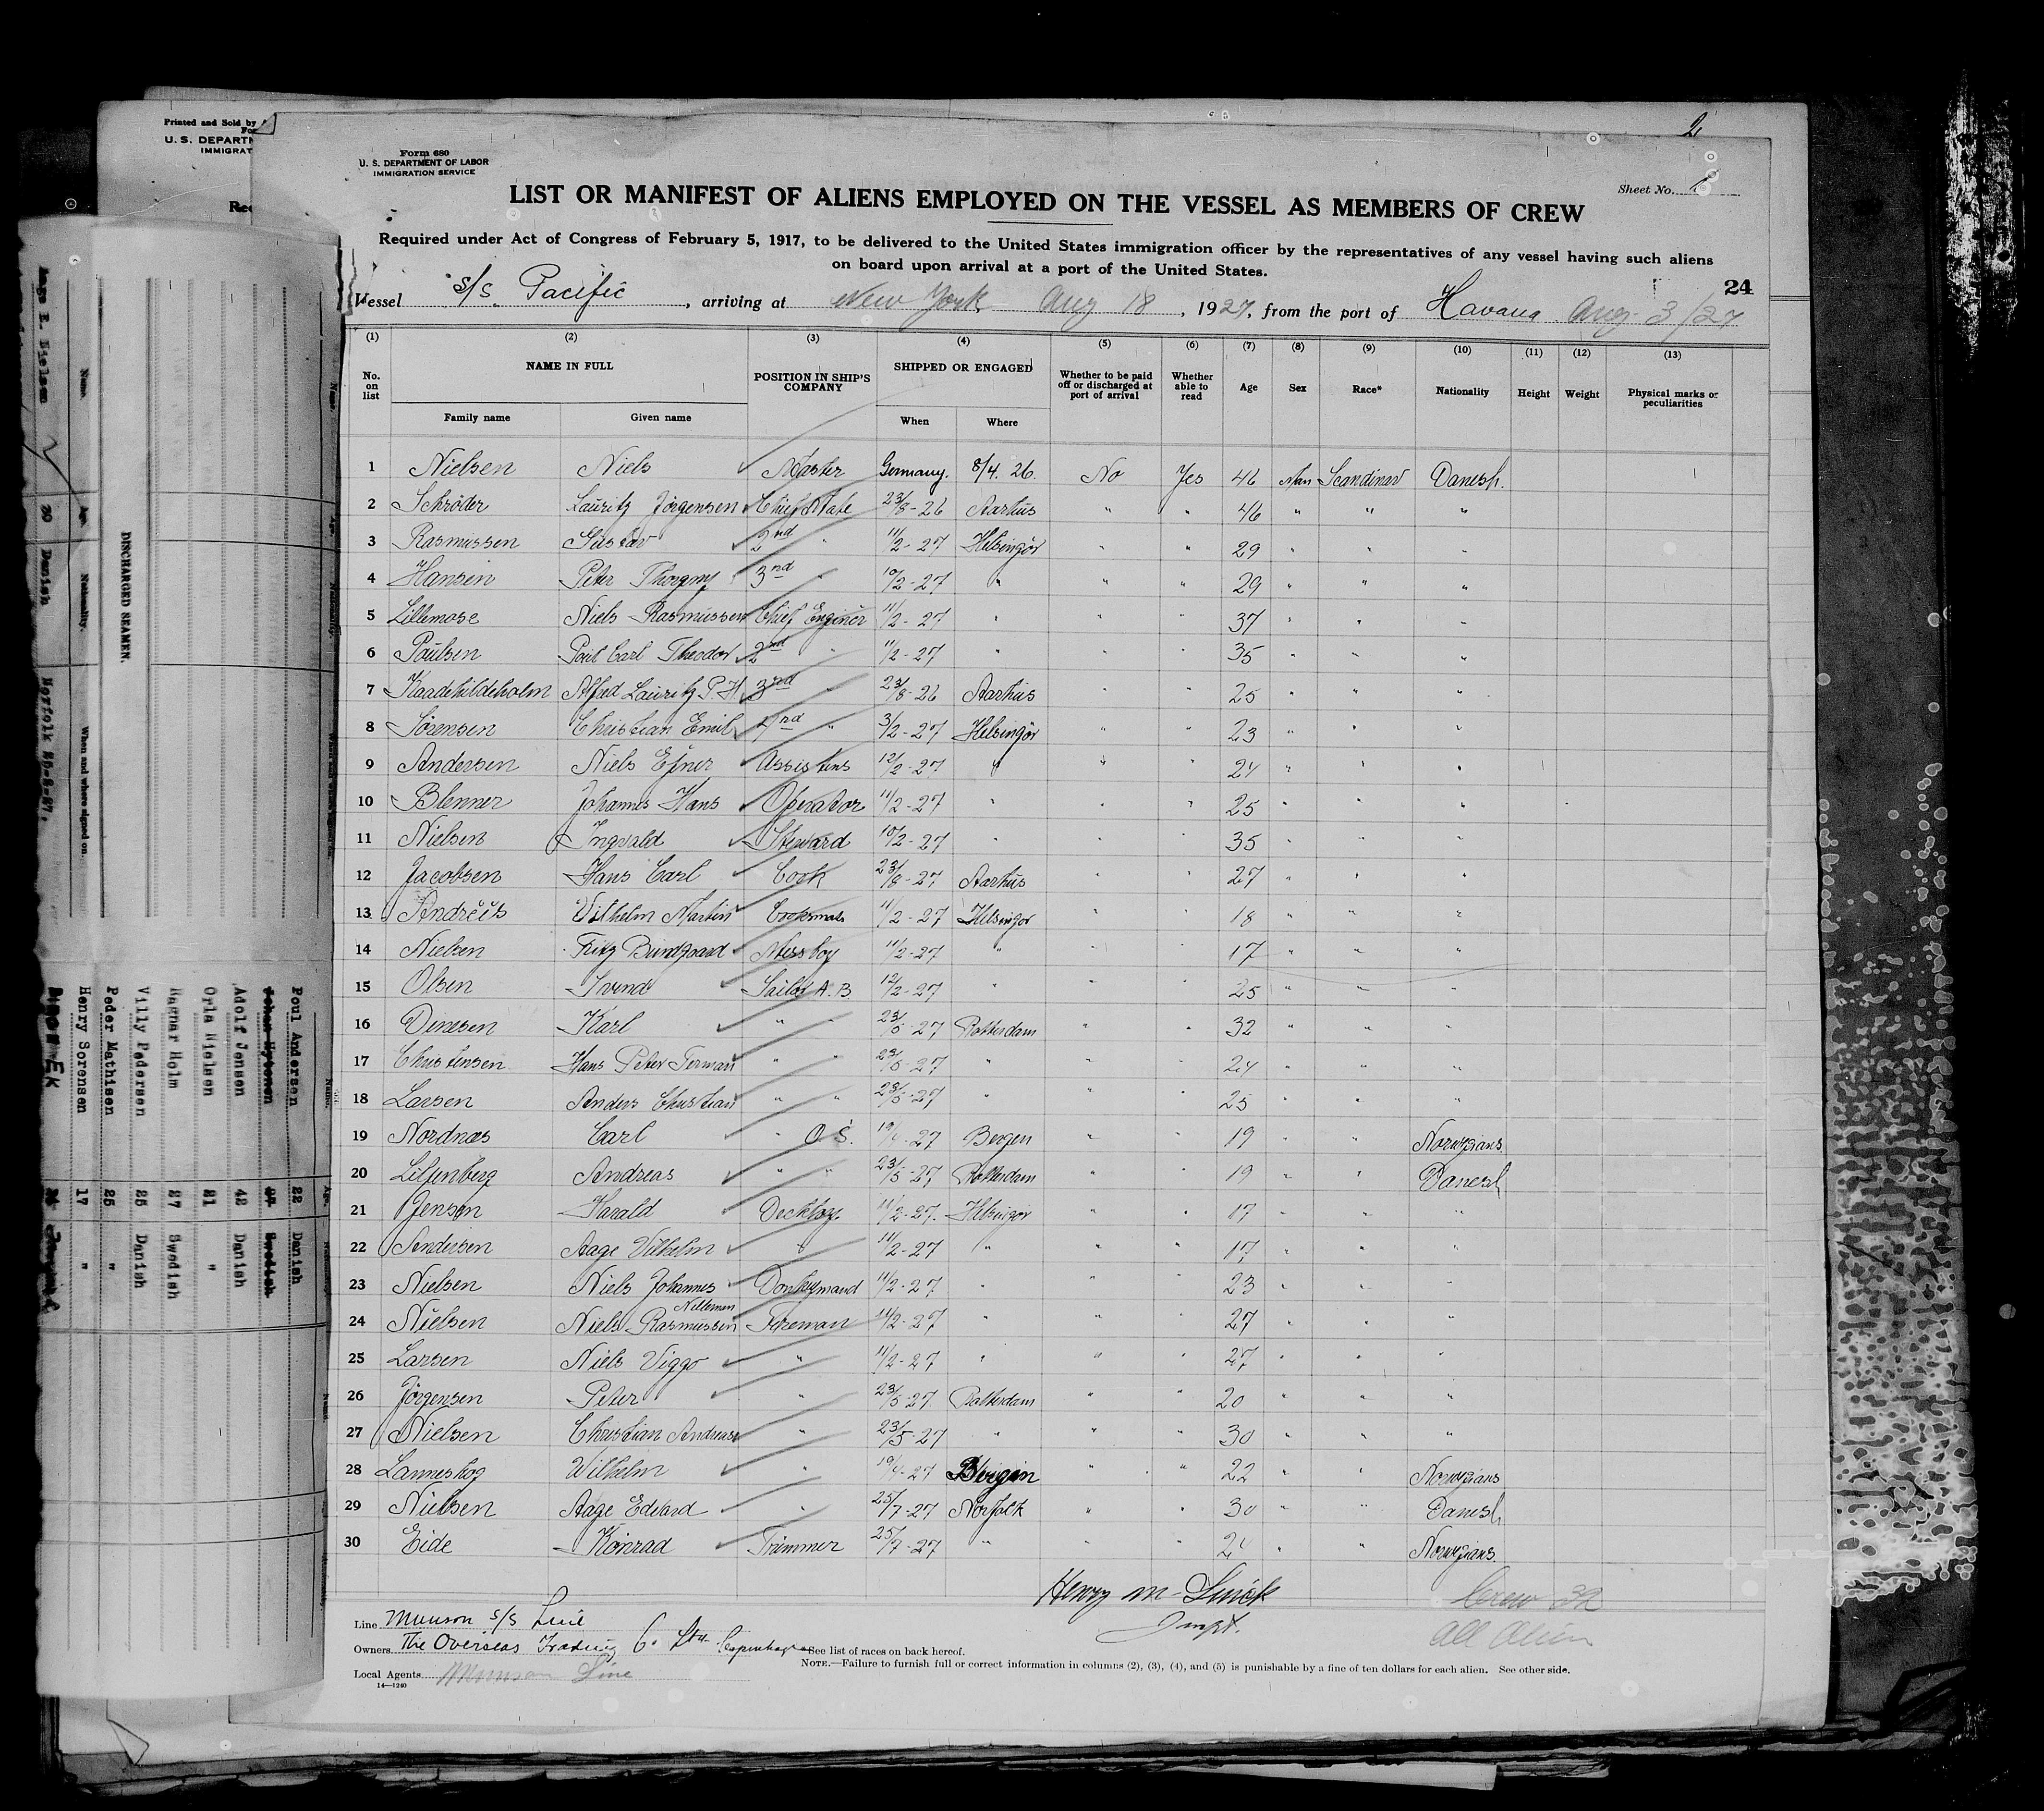 Printed and Sold by
U. S. DEPART
IMMIGRAT
Form 680
U. S. DEPARTMENT OF LABOR
IMMIGRATION SERVICE
2
Sheet No.
LIST OR MANIFEST OF ALIENS EMPLOYED ON THE VESSEL AS MEMBERS OF CREW
Required under Act of Congress of February 5, 1917, to be delivered to the United States immigration officer by the representatives of any vessel having such aliens
on board upon arrival at a port of the United States.
24
Vessel s/s. Pacific, arriving at New York Aug 18, 1927, from the port of Havana Aug 3/27
(1) (2) (3) (4) (5) (6) (7) (8) (9) (10) (11) (12) (13)
No. on list NAME IN FULL Family name Given name POSITION IN SHIP'S COMPANY SHIPPED OR ENGAGED When Where Whether to be paid off or discharged at port of arrival Whether able to read Age Sex Race* Nationality Height Weight Physical marks or peculiarities
1 Nielsen Niels Master Germany. 8/4. 26. No Yes 46 Man Scandinav Danesh.
2 Schröder Lauritz Jörgensen Chief Mate 23/8-26 Aarhus " " 46 " " "
3 Rasmussen Gustav 2nd " 11/2-27 Helsingör " " 29 " " "
4 Hansen Peter Thorgny 3nd " 10/2-27 " " " 29 " " "
5 Lillemose Niels Rasmussen Chief Enginer 11/2-27 " " " 37 " " "
6 Poulsen Poul Carl Theodor 2nd " 11/2-27 " " " 35 " " "
7 Kaadekildeholm Alfred Lauritz P H 3nd " 23/8-26 Aarhus " " 25 " " "
8 Sörensen Christian Emil 4nd " 3/2-27 Helsingör " " 23 " " "
9 Andersen Niels Ejner Assistens 12/2-27 " " " 24 " " "
10 Blenner Johannes Hans Operator 11/2-27 " " " 25 " " "
11 Nielsen Ingvald Steward 10/2-27 " " " 35 " " "
12 Jacobsen Hans Carl Cook 23/8-27 Aarhus " " 27 " " "
13 Vilhelm Martin Cooksmat 11/2-27 Helsingör " " 18 " " "
14 Nielsen Fritz Bundgaard Messboy 11/2-27 " " " 17 " " "
15 Olsen Svend Sailor A. B. 12/2-27 " " " 25 " " "
16 Denesen Karl " " 23/5-27 Rotterdam " " 32 " " "
17 Christensen Hans Peter " " 23/5-27 " " " 24 " " "
18 Larsen Anders Christian " " 23/5-27 " " " 25 " " "
19 Nordnæs Carl " O. S. 19/4-27 Bergen " " 19 " " Norwgians
20 Liljenberg Andreas " " 23/5-27 Rotterdam " " 19 " " Danesh
21 Jensen Harald Deckboy. 11/2-27. Helsingör " " 17 " " "
22 Andersen Aage Vilhelm " 11/2-27 " " " 17 " " "
23 Nielsen Niels Johannes Donkeymand 11/2-27 " " " 23 " " "
24 Nielsen Niels Rasmussen Fireman 11/2-27 " " " 27 " " "
25 Larsen Niels Viggo " 11/2-27 " " " 27 " " "
26 Jörgensen Peter " 23/5-27. Rotterdam " " 20 " " "
27 Nielsen Christian Andreas " 23/5-27 " " " 30 " " "
28 Lanneskog Wilhelm " 19/4-27 Bergen " " 22 " " Norwgians
29 Nielsen Aage Edvard " 25/7-27 Norfolk " " 30 " " Danesh
30 Eide Konrad Trimmer 25/7-27 " " " 24 " " Norwgians.
Henry M. Smick
Inspt.
Crew 32
All Alien
Line Munson S/S Line
Owners The Overseas Trading Co. Ltd. Copenhagen
*See list of races on back hereof.
NOTE.—Failure to furnish full or correct information in columns (2), (3), (4), and (5) is punishable by a fine of ten dollars for each alien. See other side.
Local Agents Munson Line
14—1240
Aage E. Nielsen 30 Danish Norfolk 25-8-27.
Name. Age. Nationality. When and where signed on.
DISCHARGED SEAMEN.
Poul Andersen 22 Danish
Adolf Jensen 42 Danish
Orla Nielsen 21 "
Ragnar Holm 27 Swedish
Villy Pedersen 25 Danish
Peder Mathisen 25 "
Henry Sorensen 17 "
Ek